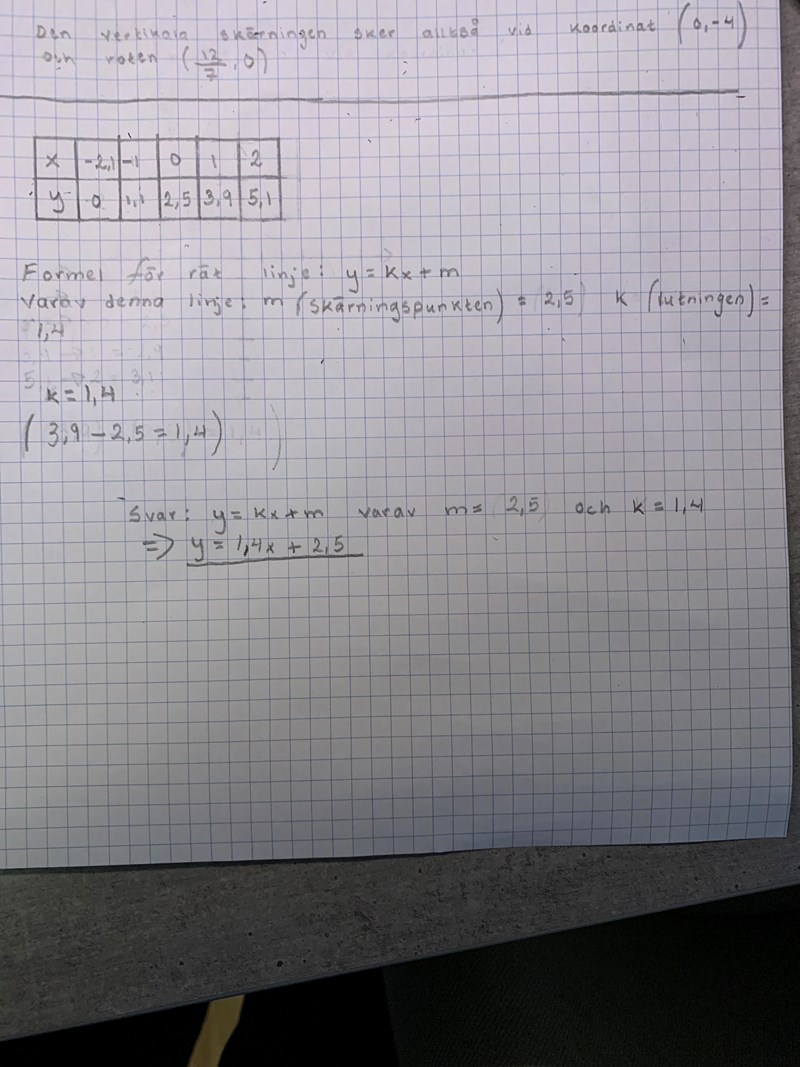 Den vertikala skärningen sker alltså vid koordinat (0,-4)
och roten (12/7, 0)
x -2,1 -1 0 1 2
y 0 1,1 2,5 3,9 5,1
Formel för rät linje: y = kx + m
varav denna linje: m (skärningspunkten) = 2,5 k (lutningen) =
1,4
k = 1,4
(3,9 - 2,5 = 1,4)
Svar: y = kx + m varav m = 2,5 och k = 1,4
=> y = 1,4x + 2,5